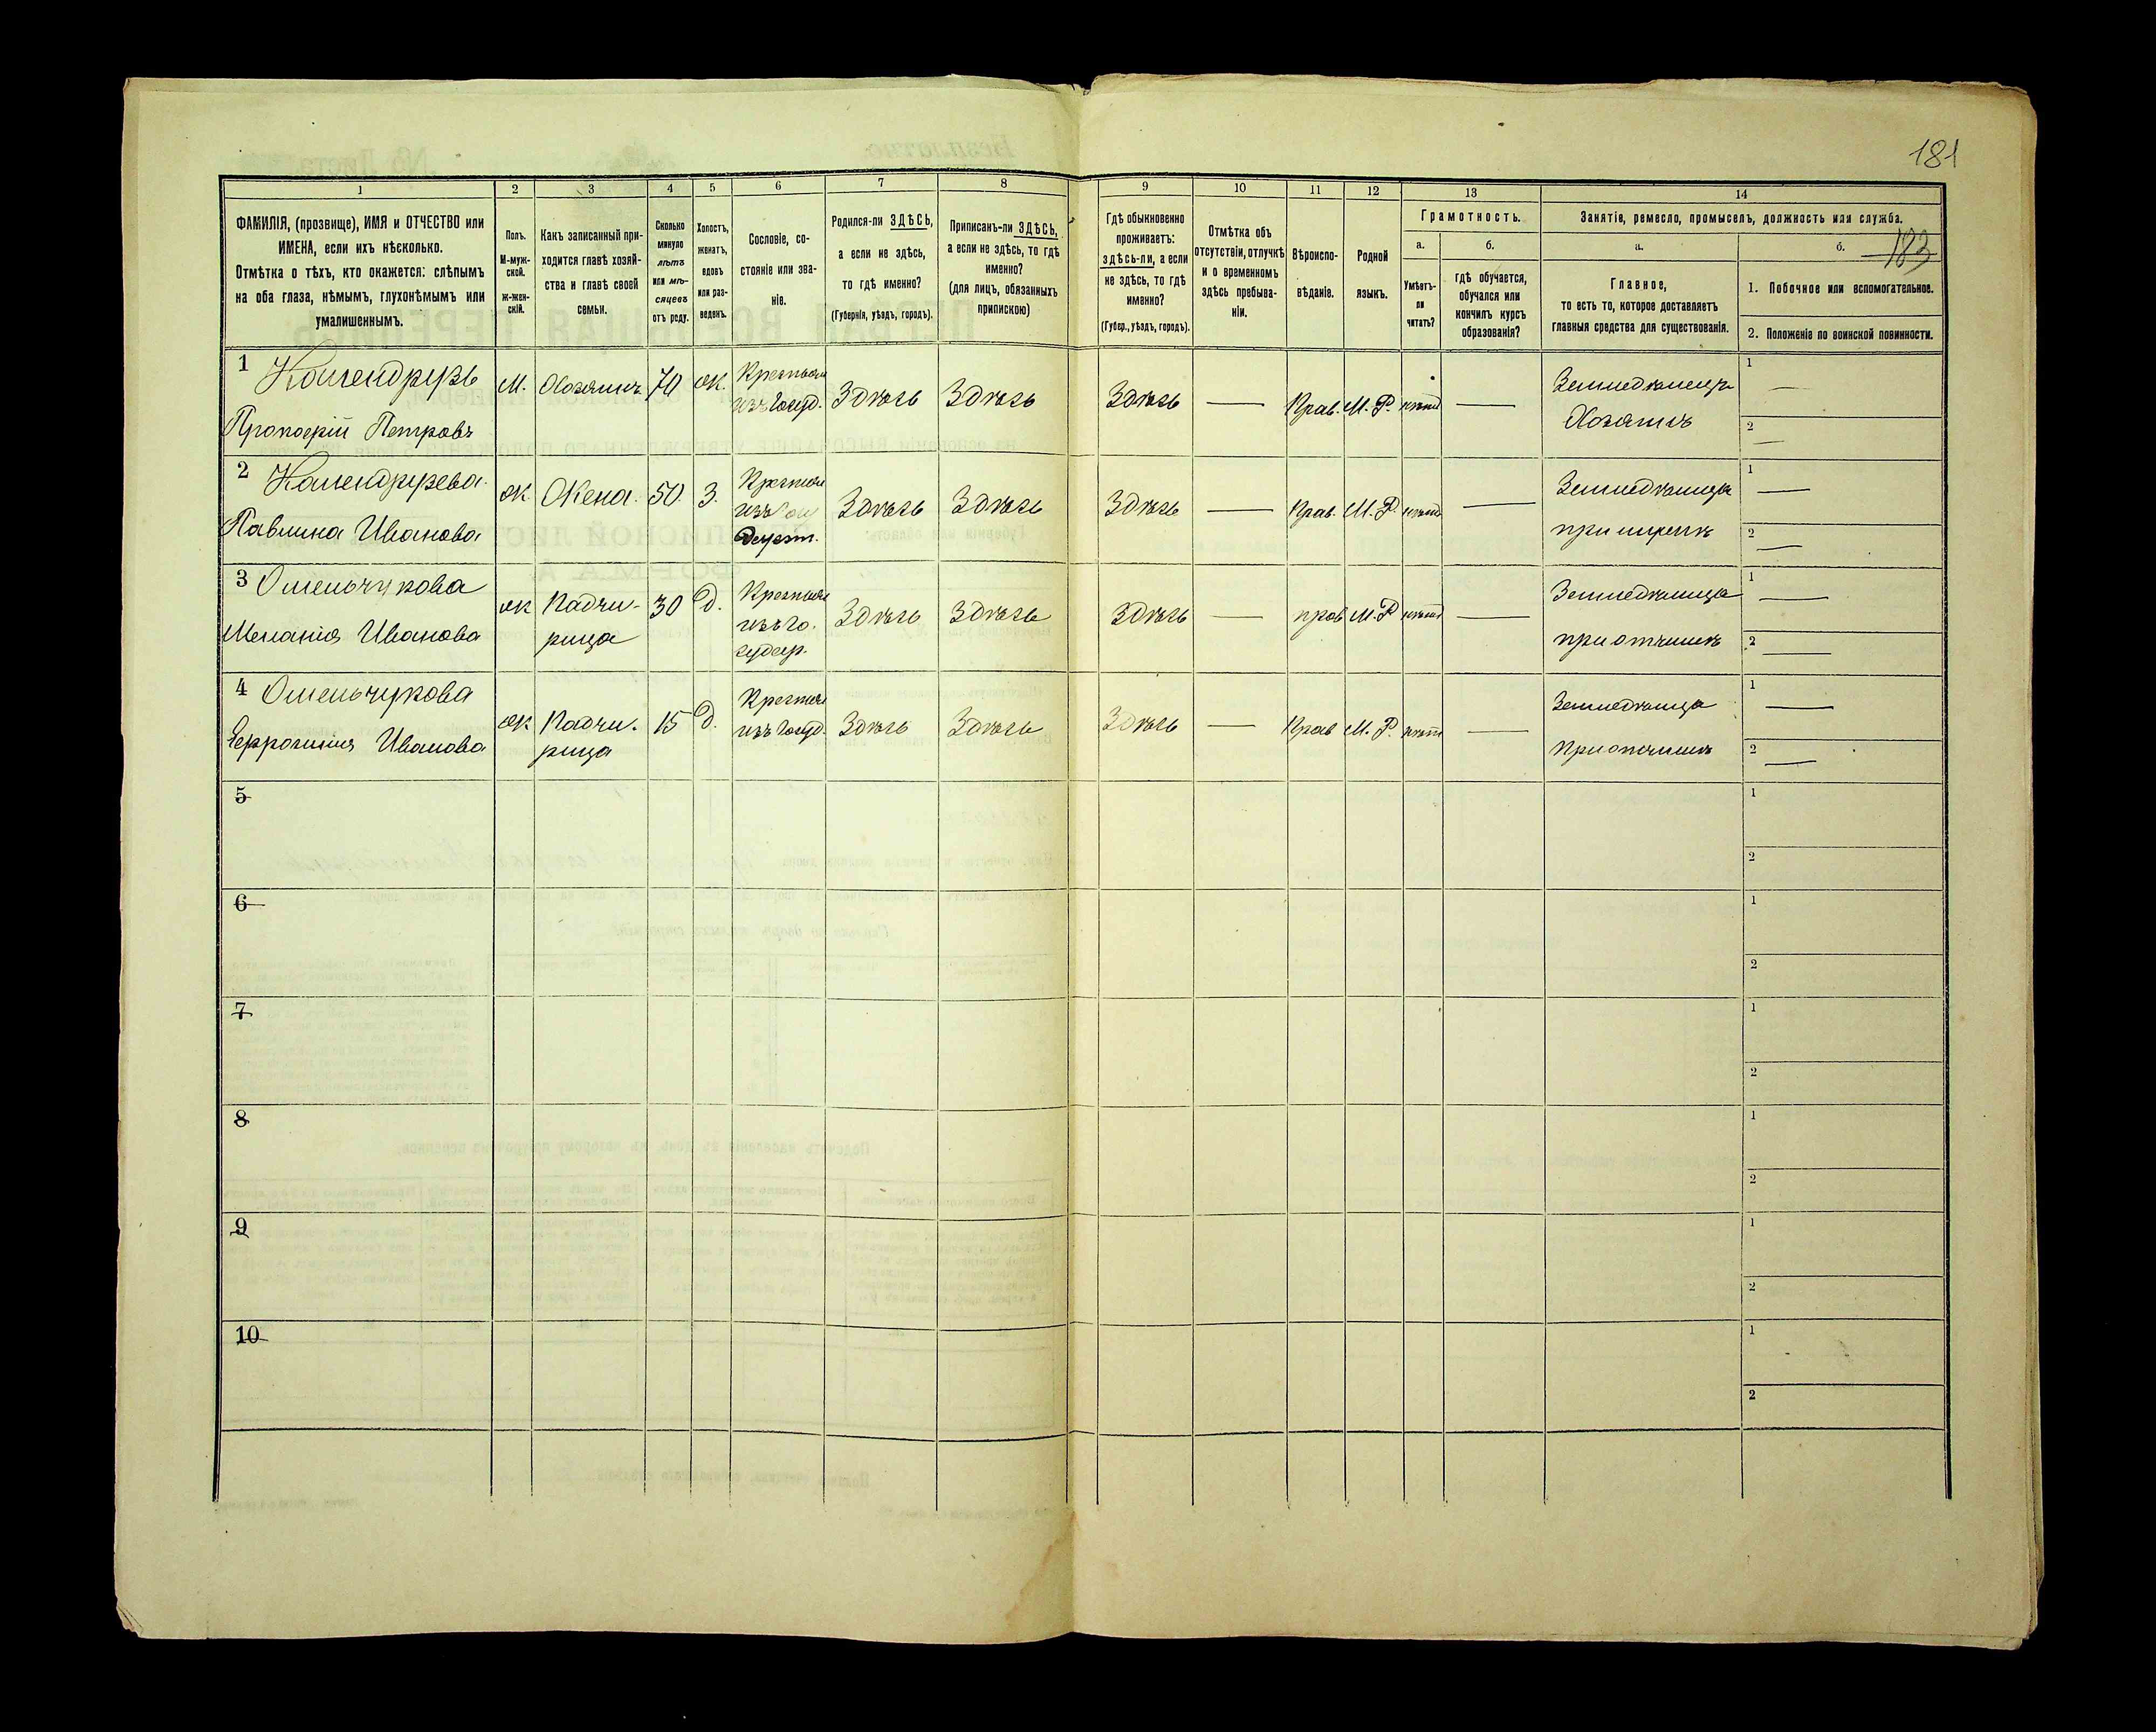 181
1 2 3 4 5 6 7 8 9 10 11 12 13 14
ФАМИЛІЯ, (прозвище), ИМЯ и ОТЧЕСТВО или
ИМЕНА, если ихъ нѣсколько.
Отмѣтка о тѣхъ, кто окажется: слѣпымъ
на оба глаза, нѣмымъ, глухонѣмымъ или
умалишеннымъ.
Полъ.
М-муж-
ской.
ж-жен-
скій.
Какъ записанный при-
ходится главѣ хозяй-
ства и главѣ своей
семьи.
Сколько
минуло
лѣтъ
или мѣ-
сяцевъ
отъ роду.
Холостъ,
женатъ,
вдовъ
или раз-
веденъ.
Сословіе, со-
стояніе или зва-
ніе.
Родился-ли ЗДѢСЬ,
а если не здѣсь,
то гдѣ именно?
(Губернія, уѣздъ, городъ).
Приписанъ-ли ЗДѢСЬ,
а если не здѣсь, то гдѣ
именно?
(для лицъ, обязанныхъ
припискою)
Гдѣ обыкновенно
проживаетъ:
здѣсь-ли, а если
не здѣсь, то гдѣ
именно?
(Губер., уѣздъ, городъ).
Отмѣтка объ
отсутствіи, отлучкѣ
и о временномъ
здѣсь пребыва-
ніи.
Вѣроиспо-
вѣданіе.
Родной
языкъ.
Грамотность.
а.
Умѣетъ-
ли
читать?
б.
гдѣ обучается,
обучался или
кончилъ курсъ
образованія?
Занятіе, ремесло, промыселъ, должность или служба.
а.
Главное,
то есть то, которое доставляетъ
главныя средства для существованія.
б.
183
1. Побочное или вспомогательное.
2. Положеніе по воинской повинности.
1
Прокофій Петровъ
М. Хозяинъ 70 Ж.
Здѣсь Здѣсь Здѣсь — Прав. М. Р. нѣтъ —
Земледѣлецъ
Хозяинъ
1 —
2 —
2
Павлина Иванова
Ж. Жена. 50 З.
Здѣсь Здѣсь Здѣсь — Прав. М. Р. нѣтъ —
Земледѣлица
при мужѣ
1 —
2 —
3 Омельчукова
Меланія Иванова
Ж Падче-
рица
30 Д.
Здѣсь Здѣсь Здѣсь — прав М. Р нѣтъ —
Земледѣлица
при отчимѣ
1 —
2 —
4 Омельчукова
Иванова
Ж Падче-
рица
15 Д.
Здѣсь Здѣсь Здѣсь — Прав М. Р. нѣтъ —
Земледѣлица
при отчимѣ
1 —
2 —
5
1
2
6
1
2
7
1
2
8
1
2
9
1
2
10
1
2